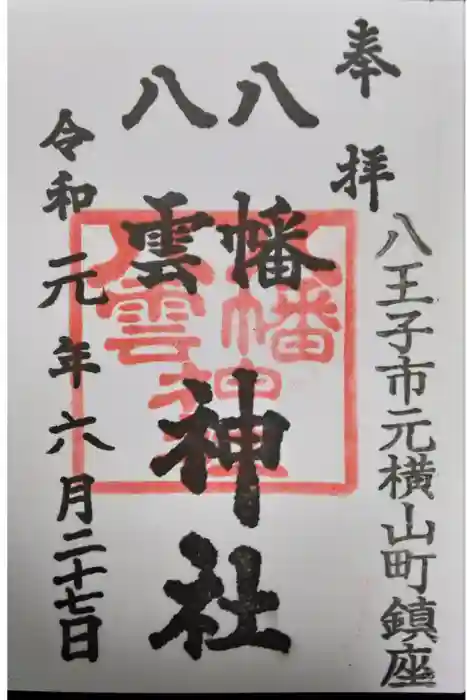 奉拝
八王子市元横山町鎮座
八幡
八雲
神社
令和元年六月二十七日
八幡
八雲
神社